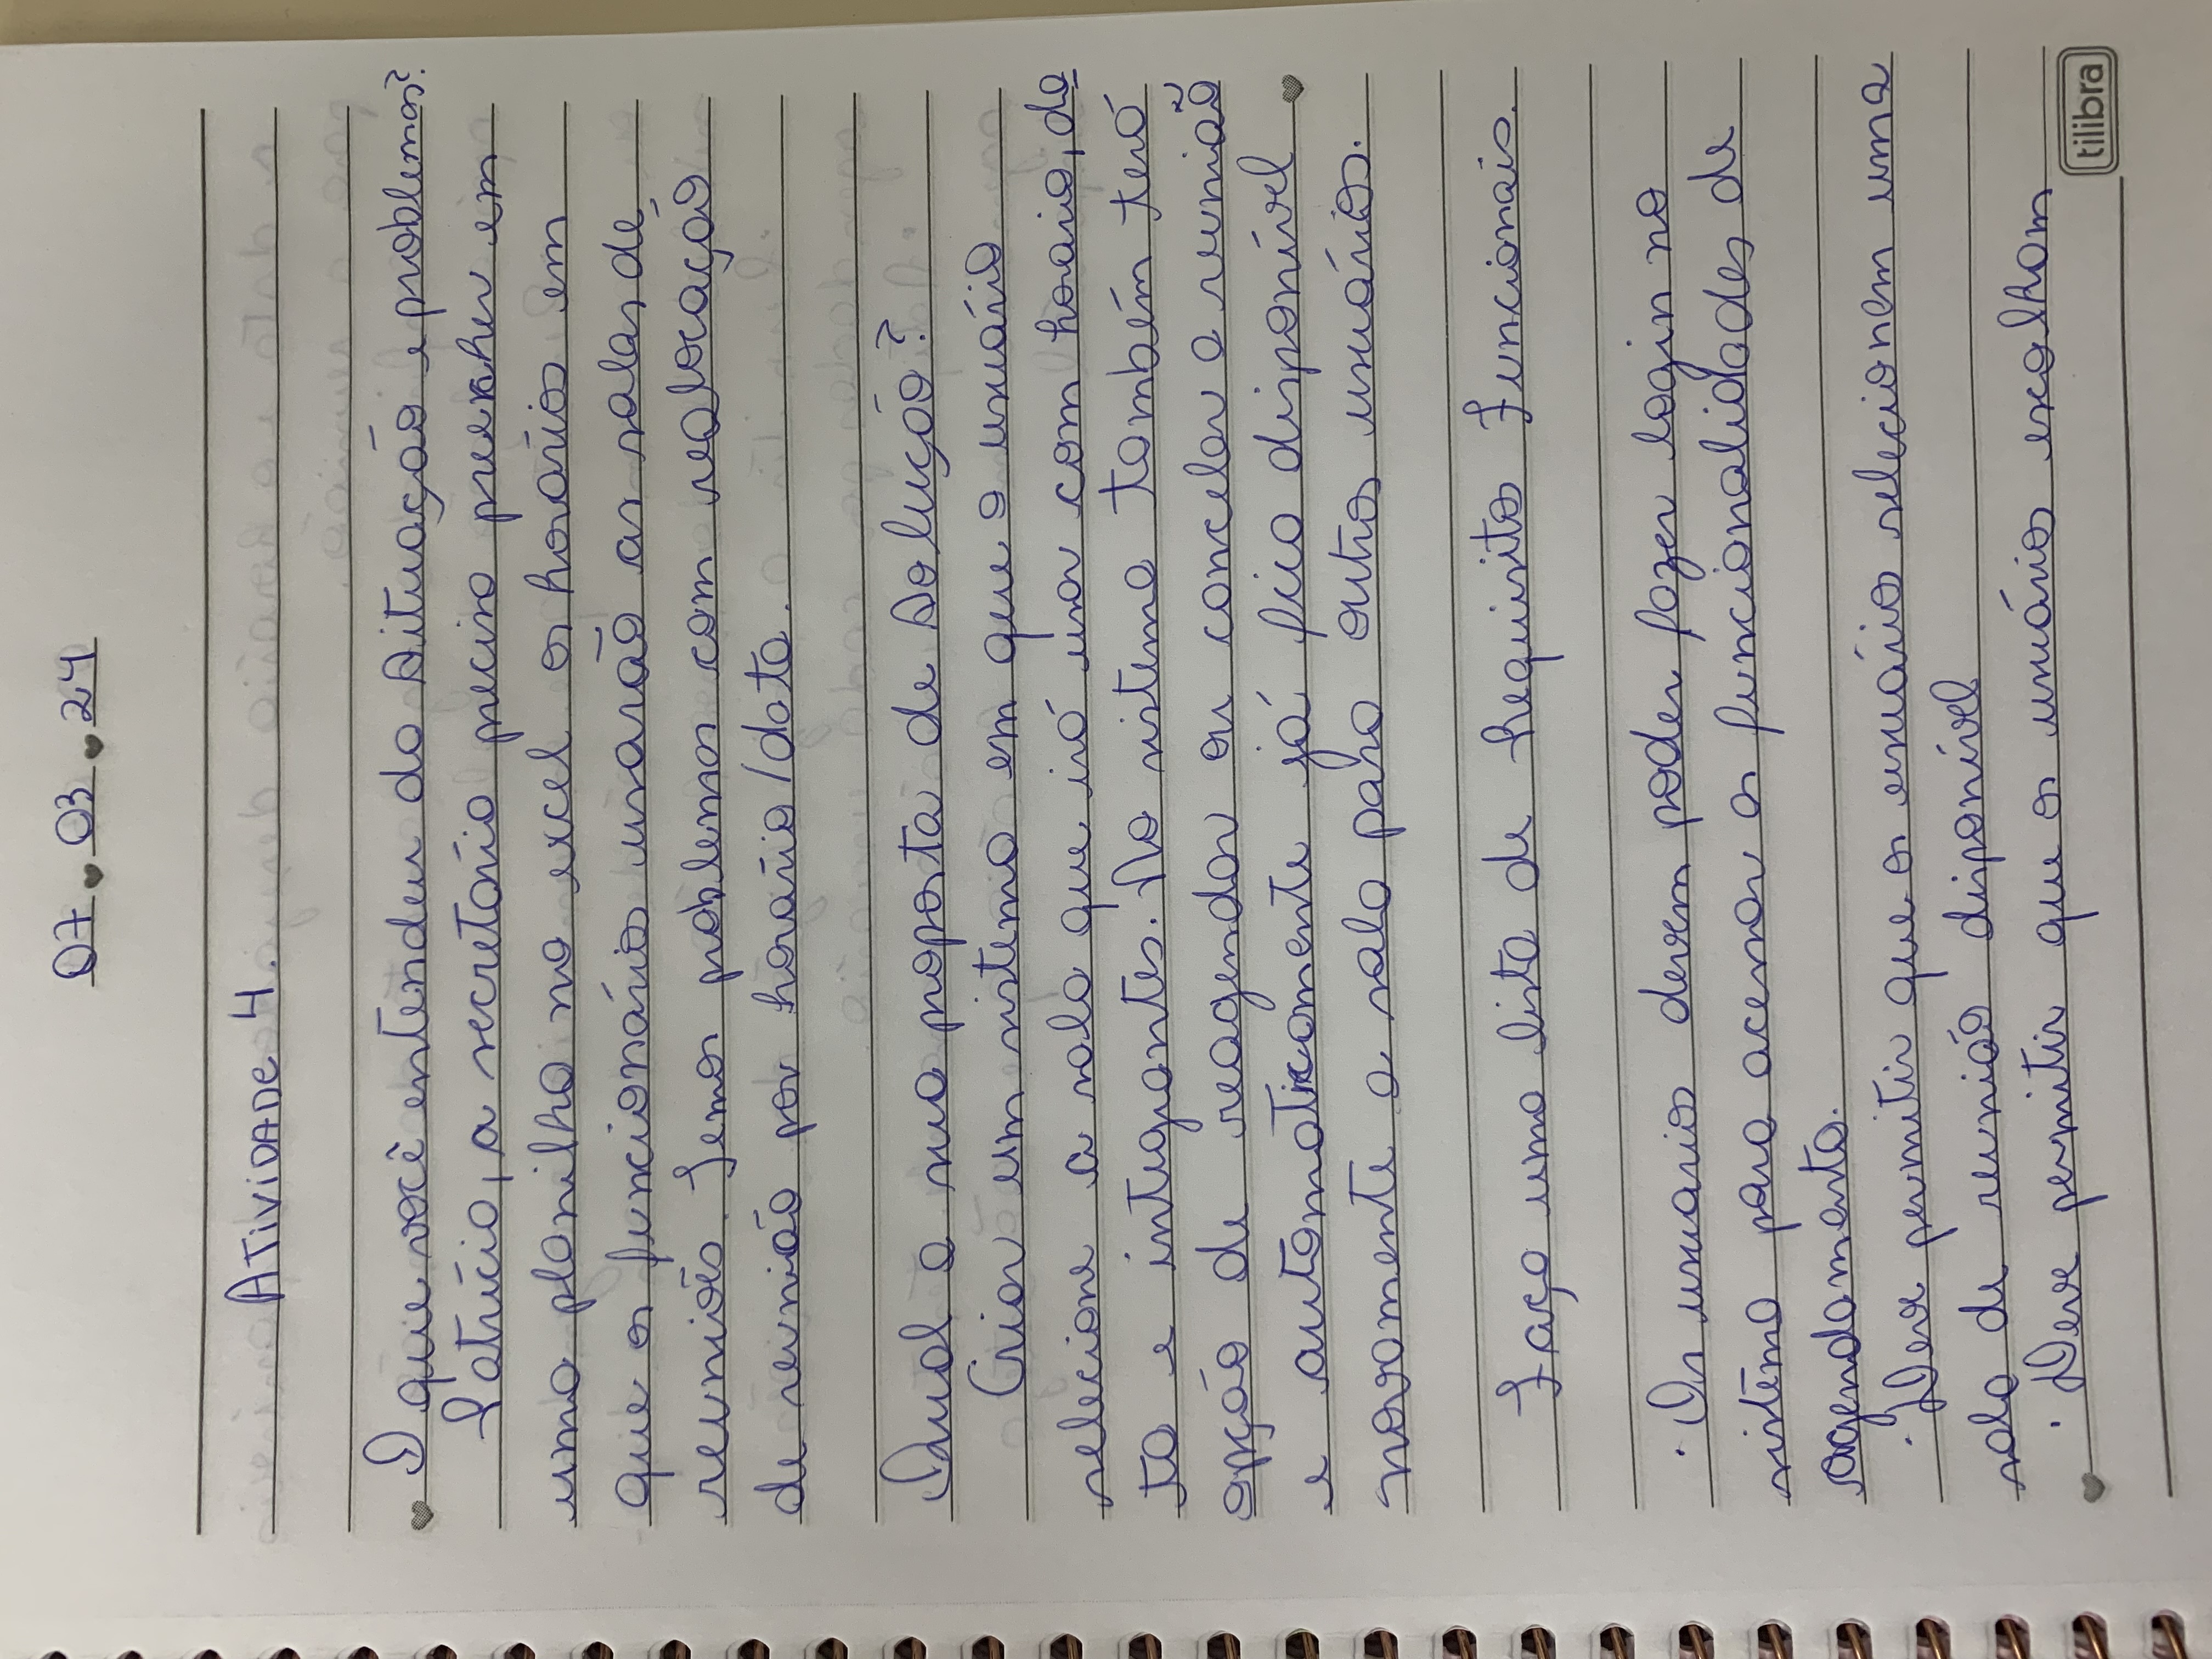 07 . 03 . 24
ATIVIDADE 4.
O que você entendeu da situação e problemas?
Patrícia, a secretária precisa preencher em
uma planilha no excel os horários em
que os funcionários usarão as salas de
reuniões. Temos problemas com realocação
de reunião por horario/data.
Qual a sua proposta de solução?
Criar um sistema em que o usuário
selecione a sala que irá usar com horario, da
ta e integrantes. No sistema também terá
opção de reagendar ou cancelar a reunião
e automaticamente já fica disponível
novamente a sala para outros usuários.
Faça uma lista de Requisitos Funcionais.
· Os usuarios devem poder fazer login no
sistema para acessar as funcionalidades de
agendamento.
· Deve permitir que os usuários selecionem uma
sala de reunião disponível
· Deve permitir que os usuários escolham
tilibra